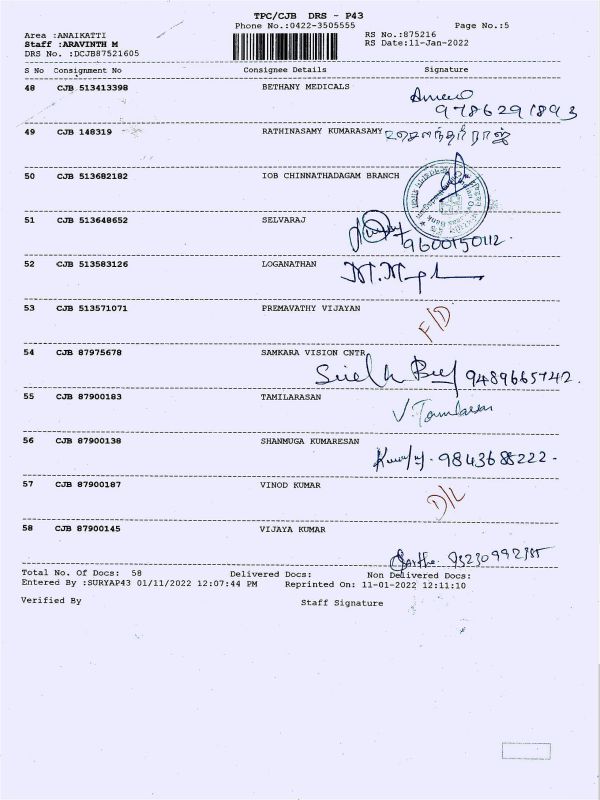 TPC/CJB DRS - P43
Phone No.:0422-3505555 Page No.:5
Area :ANAIKATTI RS No.:875216
Staff :ARAVINTH M RS Date:11-Jan-2022
DRS No. :DCJB87521605
S No Consignment No Consignee Details Signature
48 CJB 513413398 BETHANY MEDICALS
9786291893
49 CJB 148319 RATHINASAMY KUMARASAMY
50 CJB 513682182 IOB CHINNATHADAGAM BRANCH
51 CJB 513648652 SELVARAJ
9600150112.
52 CJB 513583126 LOGANATHAN
53 CJB 513571071 PREMAVATHY VIJAYAN
F/D
54 CJB 87975678 SAMKARA VISION CNTR
9489665742.
55 CJB 87900183 TAMILARASAN
V. Tamilarasan
56 CJB 87900138 SHANMUGA KUMARESAN
9843685222-
57 CJB 87900187 VINOD KUMAR
D/L
58 CJB 87900145 VIJAYA KUMAR
Total No. Of Docs: 58 Delivered Docs: Non Delivered Docs:
Entered By :SURYAP43 01/11/2022 12:07:44 PM Reprinted On: 11-01-2022 12:11:10
Verified By Staff Signature